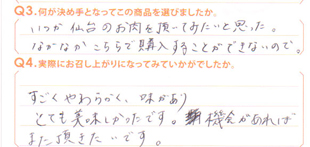 Q3.何が決め手となってこの商品を選びましたか。
いつか仙台のお肉を頂いてみたいと思った。
なかなかこちらで購入することができないので。
Q4.実際にお召し上がりになってみていかがでしたか。
すごくやわらかく、味があり
とても美味しかったです。機会があれば
また頂きたいです。